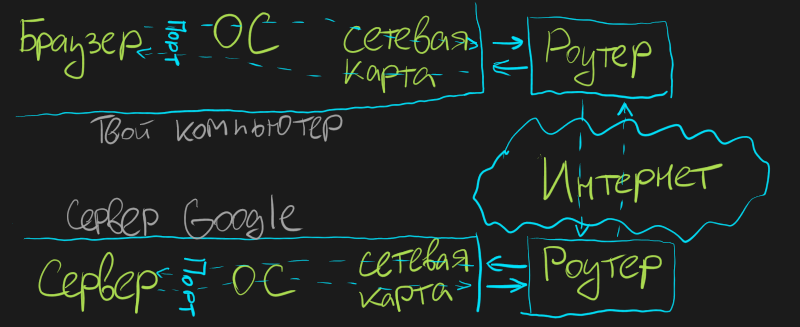 Браузер Порт ОС сетевая карта Роутер
Твой компьютер
Интернет
Сервер Google
Сервер Порт ОС сетевая карта Роутер